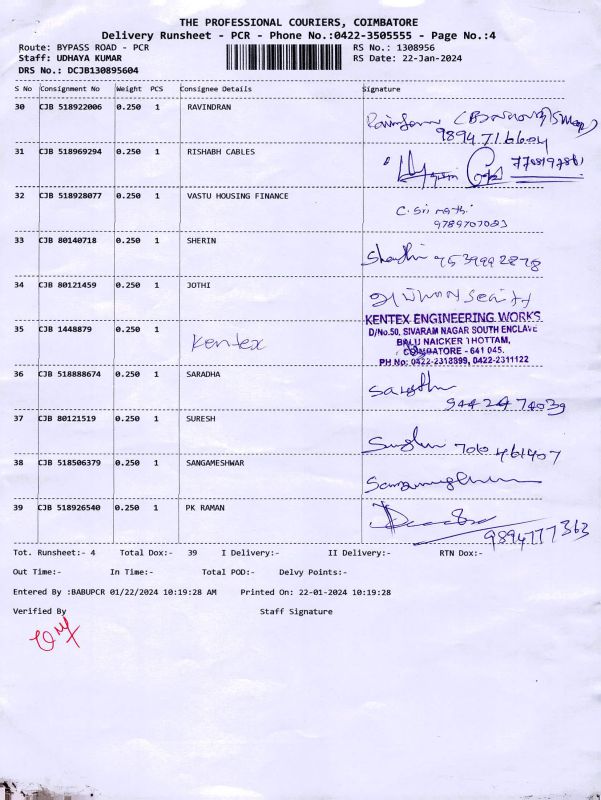 THE PROFESSIONAL COURIERS, COIMBATORE
Delivery Runsheet - PCR - Phone No.:0422-3505555 - Page No.:4
Route: BYPASS ROAD - PCR
RS No.: 1308956
Staff: UDHAYA KUMAR
RS Date: 22-Jan-2024
DRS No.: DCJB130895604
S No Consignment No Weight PCS Consignee Details Signature
30 CJB 518922006 0.250 1 RAVINDRAN
9894716604
31 CJB 518969294 0.250 1 RISHABH CABLES
32 CJB 518928077 0.250 1 VASTU HOUSING FINANCE
C. Sri mathi
9789707083
33 CJB 80140718 0.250 1 SHERIN
7539992878
34 CJB 80121459 0.250 1 JOTHI
35 CJB 1448879 0.250 1 Kentex
KENTEX ENGINEERING WORKS
D/No.50, SIVARAM NAGAR SOUTH ENCLAVE
BALU NAICKER THOTTAM,
COIMBATORE - 641 045.
PH No: 0422-2318399, 0422-2311122
36 CJB 518888674 0.250 1 SARADHA
9442474039
37 CJB 80121519 0.250 1 SURESH
38 CJB 518506379 0.250 1 SANGAMESHWAR
39 CJB 518926540 0.250 1 PK RAMAN
9894777363
Tot. Runsheet:- 4 Total Dox:- 39 I Delivery:- II Delivery:- RTN Dox:-
Out Time:- In Time:- Total POD:- Delvy Points:-
Entered By :BABUPCR 01/22/2024 10:19:28 AM Printed On: 22-01-2024 10:19:28
Verified By Staff Signature